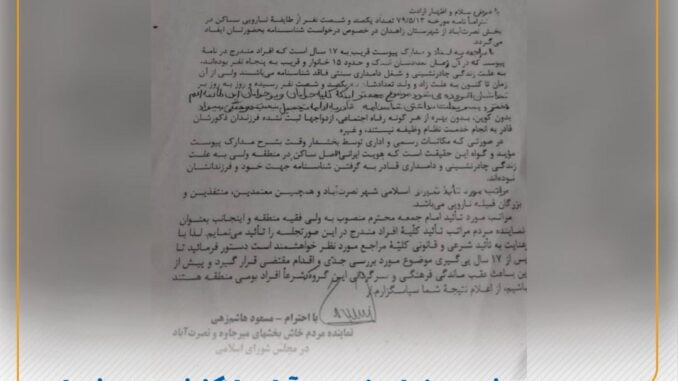 با عرض سلام و اظهار ارادت
احتراماً نامه مورخه ۷۹/۵/۱۳ تعداد یکصد و شصت نفر از طایفهٔ نارویی ساکن در
بخش نصرت‌آباد از شهرستان زاهدان در خصوص درخواست شناسنامه بحضورتان ایفاد
می‌گردد.
با مراجعه به اسناد و مدارک پیوست قریب به ۱۷ سال است که افراد مندرج در نامهٔ
پیوست که در آن زمان تعدادشان اندک و حدود ۱۵ خانوار و قریب به پنجاه نفر بوده‌اند
به علت زندگی چادرنشینی و شغل دامداری سنتی فاقد شناسنامه می‌باشند ولی از آن
زمان تاکنون به علت زاد و ولد تعدادشان به یکصد و شصت نفر رسیده و روز به روز بر
بدون کوپن، بدون بهره از هر گونه رفاه اجتماعی، ازدواجها ثبت نشده فرزندان ذکورشان
قادر به انجام خدمت نظام وظیفه نیستند، و غیره
در صورتی که مکاتبات رسمی و اداری توسط بخشدار وقت بشرح مدارک پیوست
مؤید و گواه این حقیقت است که هویت ایرانی‌الاصل ساکن در منطقه ولی به علت
زندگی چادرنشینی و دامداری قادر به گرفتن شناسنامه جهت خود و فرزندانشان
نبوده‌اند.
مراتب مورد تأئید شورای اسلامی شهر نصرت‌آباد و همچنین معتمدین، متنفذین و
بزرگان قبیله نارویی می‌باشد.
مراتب مورد تأئید امام جمعه محترم منصوب به ولی فقیه منطقه و اینجانب بعنوان
نماینده مردم مراتب تأئید کلیهٔ افراد مندرج در این صورتجلسه را تأئید می‌نمایم. لذا با
عنایت به تأئید شرعی و قانونی کلیهٔ مراجع مورد نظر خواهشمند است دستور فرمائید تا
پس از ۱۷ سال پی‌گیری موضوع مورد بررسی جدی و اقدام مقتضی قرار گیرد و پیش از
این باعث عقب ماندگی فرهنگی و سرگردانی این گروه شرعاً افراد بومی منطقه هستند
باشیم، از اعلام نتیجهٔ شما سپاسگزارم.
با احترام - مسعود هاشم‌زهی
نماینده مردم خاش بخشهای میرجاوه و نصرت‌آباد
در مجلس شورای اسلامی